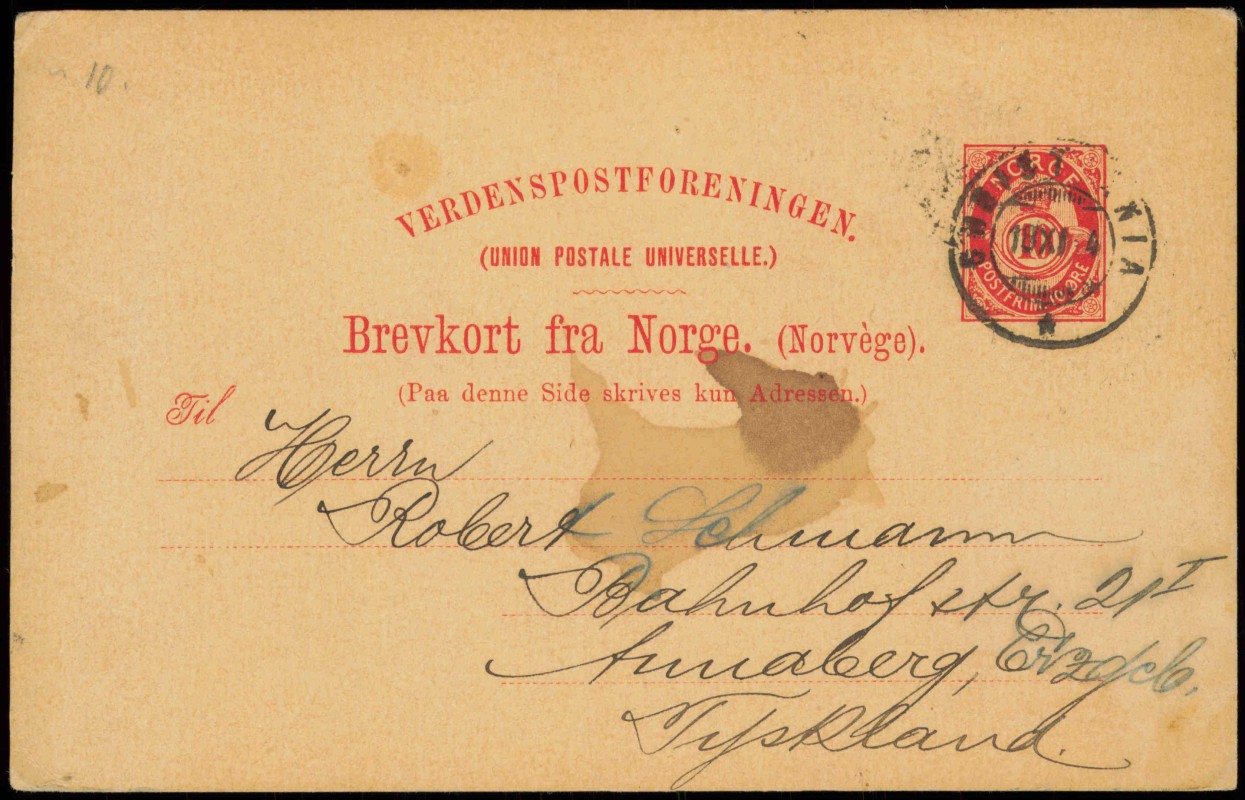 10.
VERDENSPOSTFORENINGEN.
(UNION POSTALE UNIVERSELLE.)
Brevkort fra Norge. (Norvège).
(Paa denne Side skrives kun Adressen.)
NORGE
10
POSTFRIM. 10 ØRE
XI 4
Til
Herrn
Robert Lehmann
Bahnhofstr. 21 I
Annaberg, Erzgeb.
Tyskland.